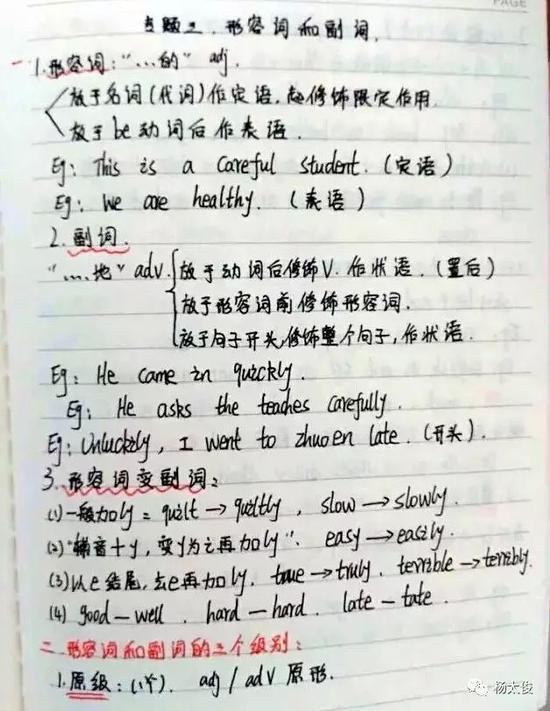 PAGE
专题二. 形容词和副词.
一 1.形容词: "…的" adj.
放于名词(代词)作定语, 起修饰限定作用.
放于be动词后作表语.
Eg: This is a careful student. (定语)
Eg: We are healthy. (表语)
2. 副词.
"…地" adv. 放于动词后修饰V. 作状语. (置后)
放于形容词前修饰形容词.
放于句子开头,修饰整个句子,作状语.
Eg: He came in quickly.
Eg: He asks the teaches carefully.
Eg: Unluckily, I went to zhuoen late. (开头).
3. 形容词变副词:
(1)一般加ly = quilt → quiltly, slow → slowly.
(2)"辅音+y, 变y为i再加ly". easy → easily.
(3)以e结尾,去e再加ly. true → truly. terrible → terribly.
(4) good — well. hard — hard. late — tate.
二. 形容词和副词的三个级别:
1.原级: (1个). adj / adv 原形.
杨太俊